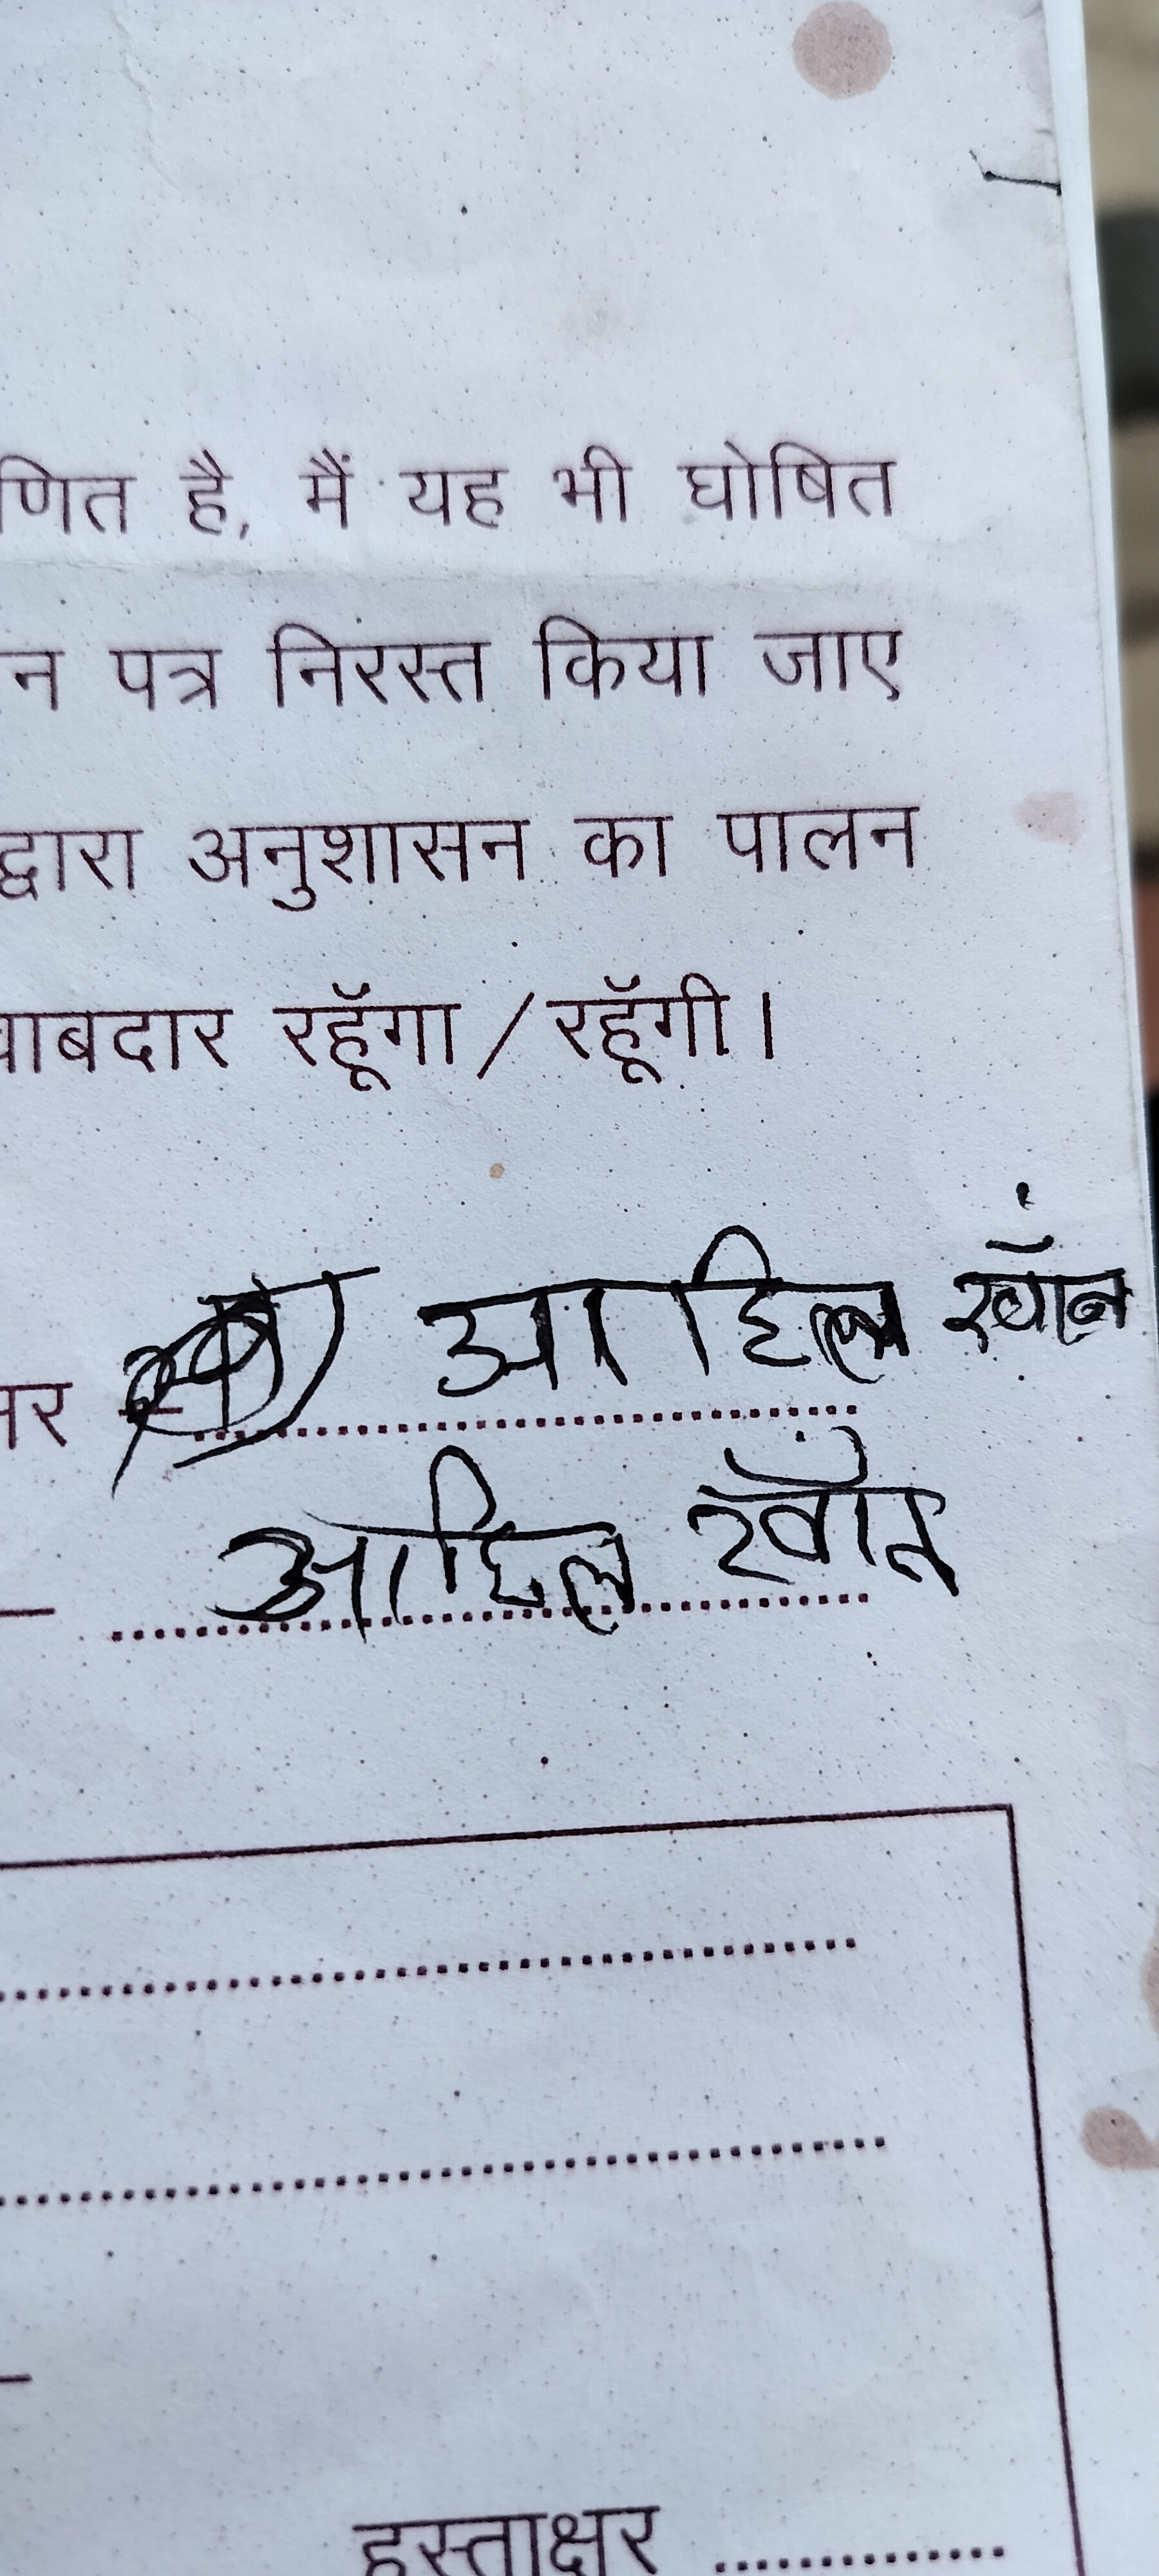 णित है, मैं यह भी घोषित
न पत्र निरस्त किया जाए
द्वारा अनुशासन का पालन
वाबदार रहूँगा / रहूँगी।
आहिल खाँन
आहिल खाँन
हस्ताक्षर